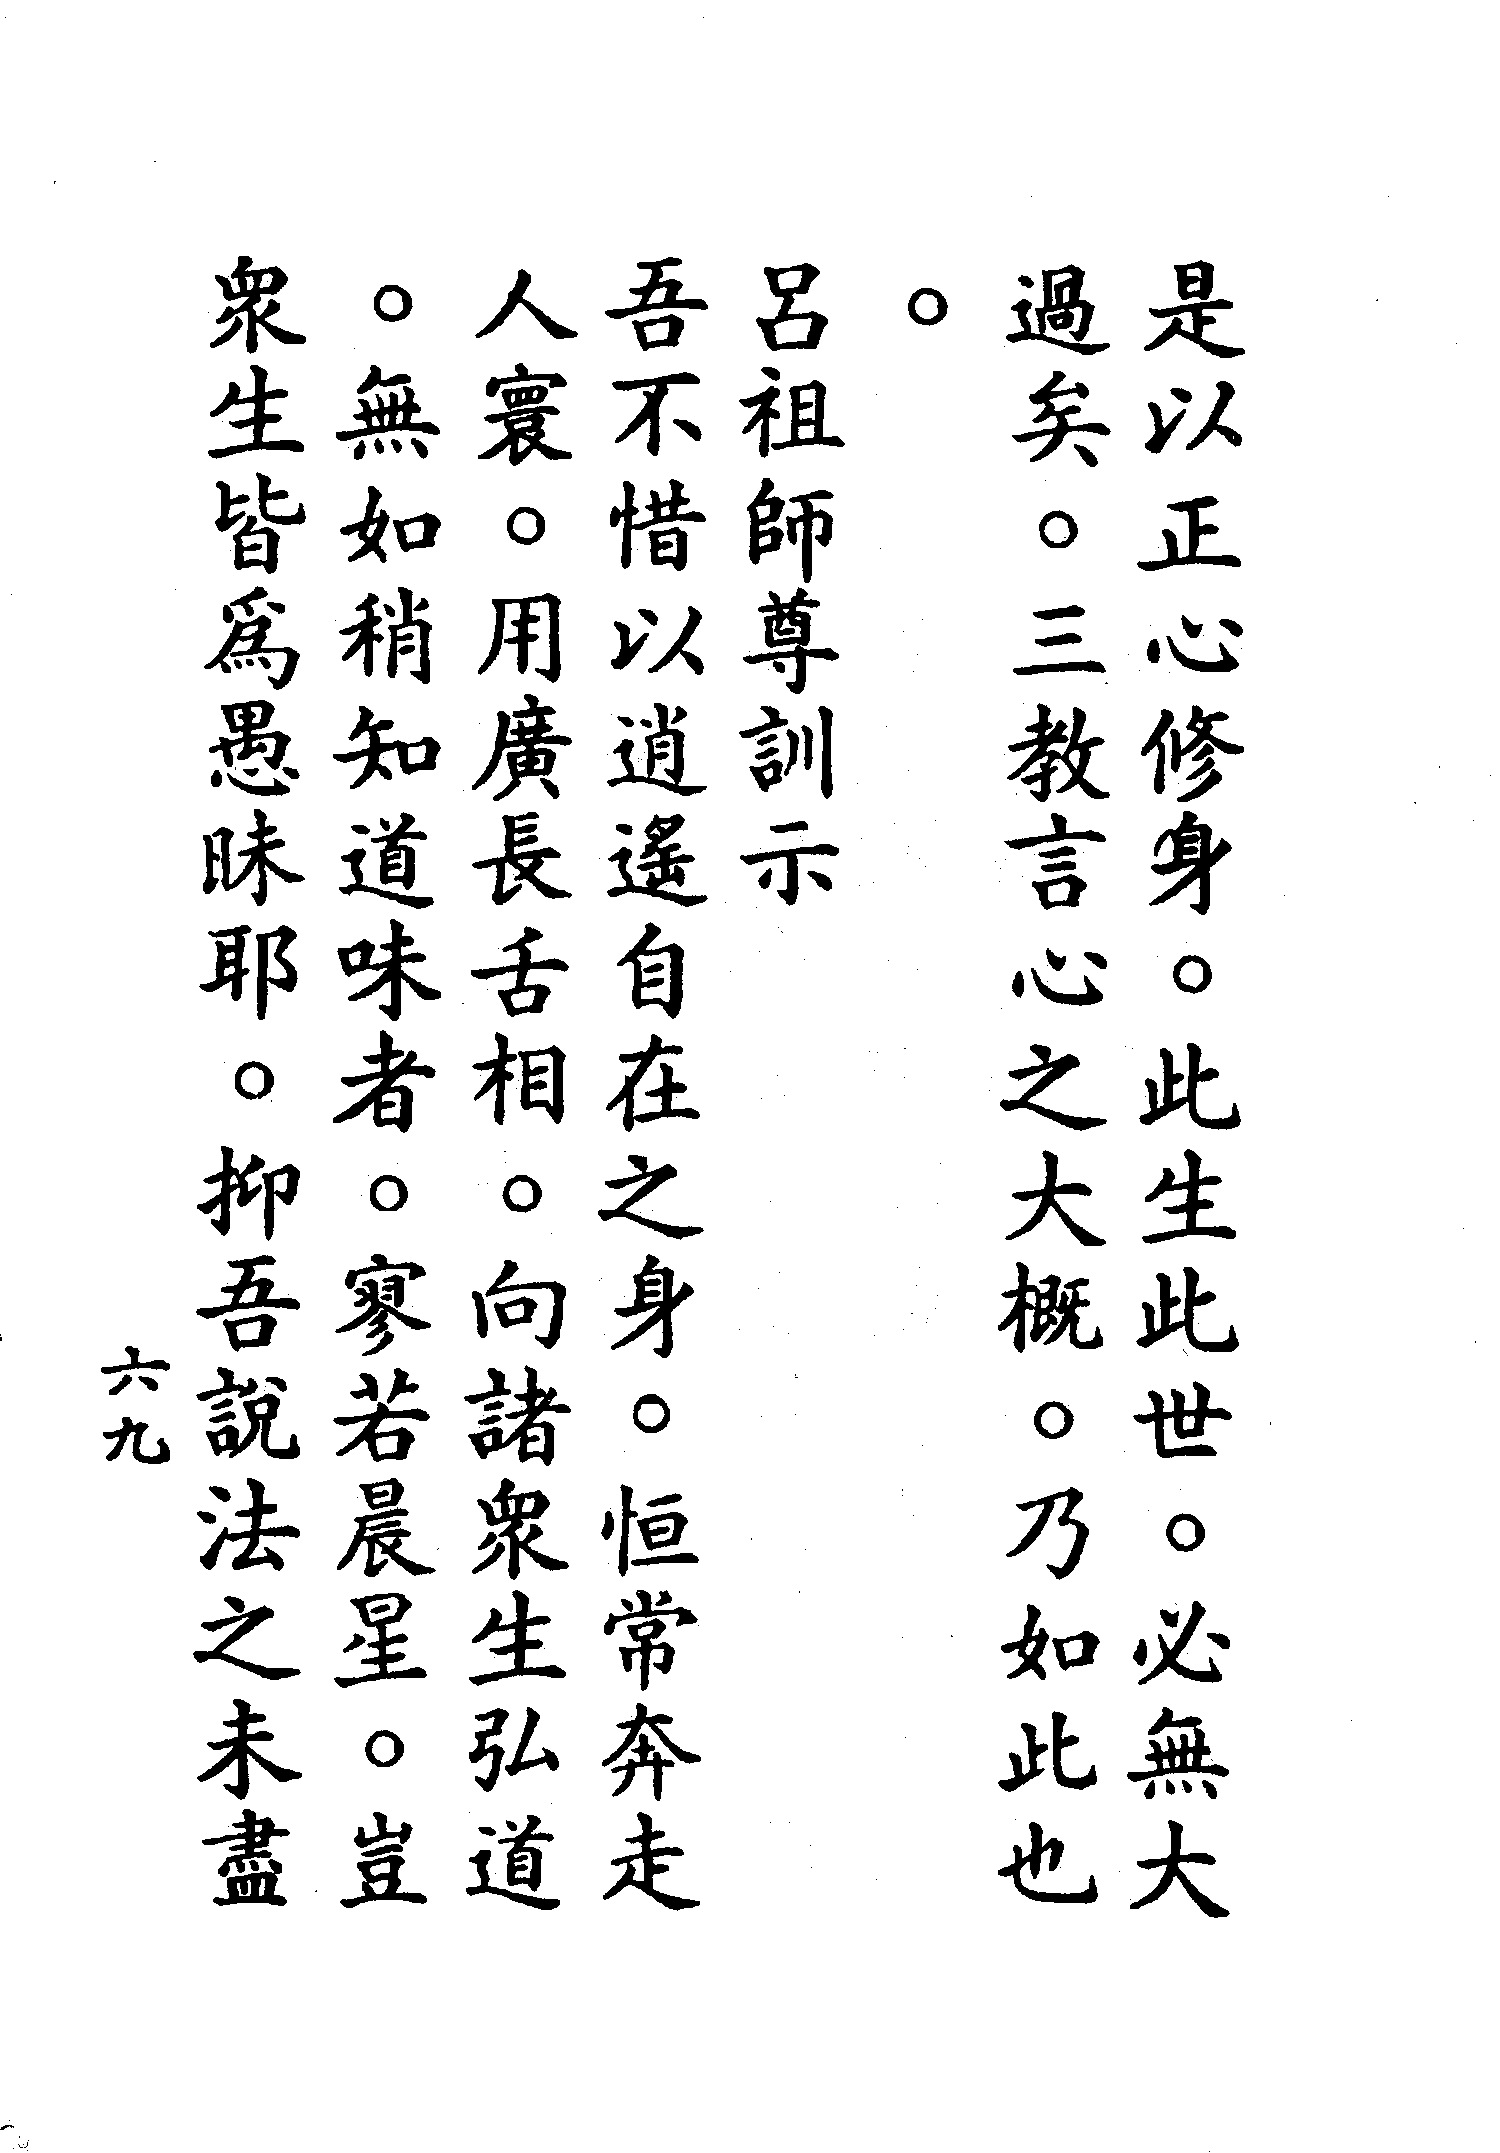 是以正心修身。此生此世。必無大
過矣。三教言心之大概。乃如此也
。
呂祖師尊訓示
吾不惜以逍遙自在之身。恒常奔走
人寰。用廣長舌相。向諸眾生弘道
。無如稍知道味者。寥若晨星。豈
眾生皆為愚昧耶。抑吾說法之未盡
六九